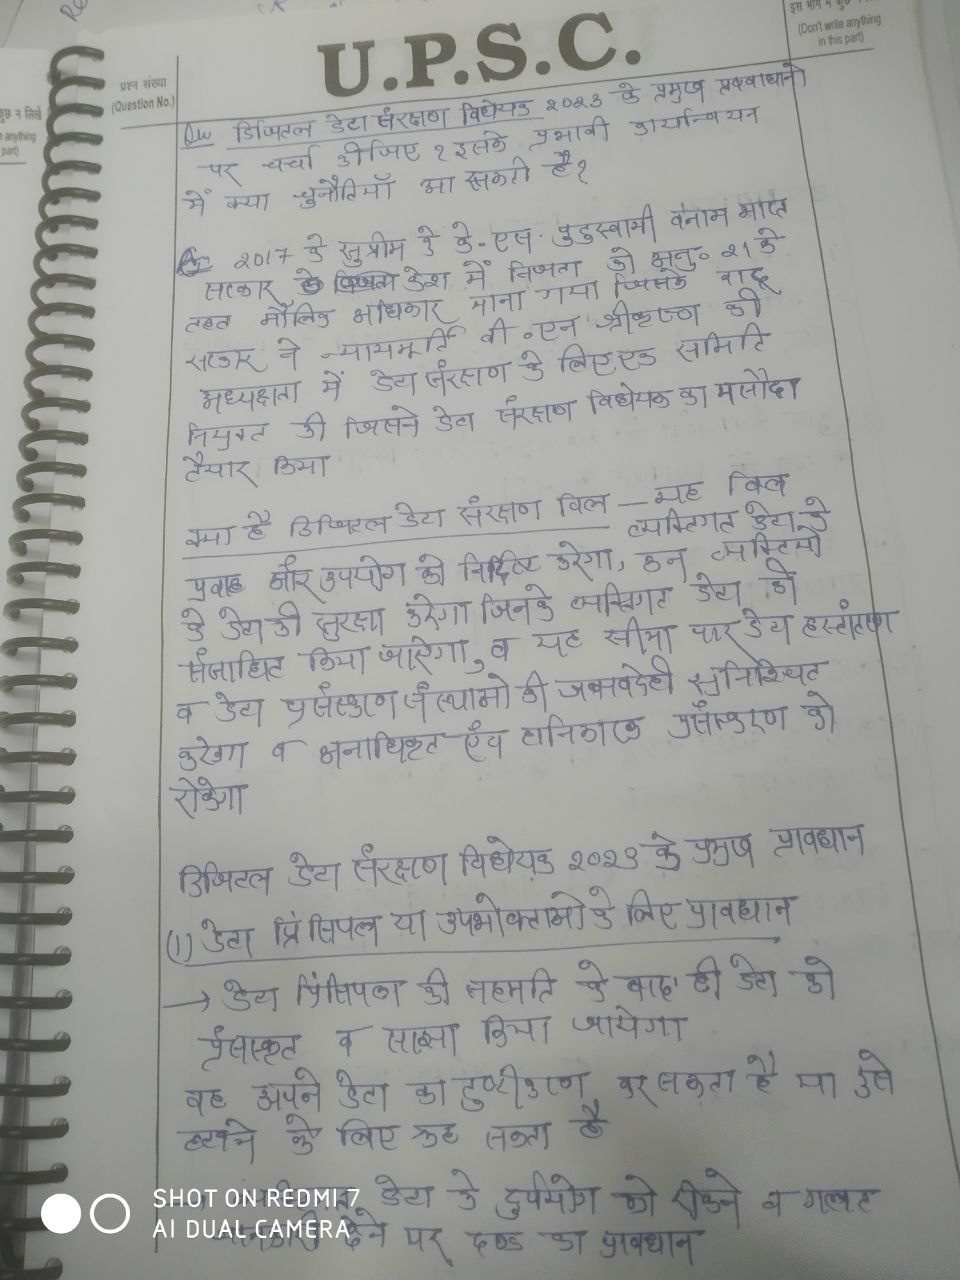 U.P.S.C.
इस भाग में कुछ न
(Don't write anything
in this part)
कुछ न लिखें
anything
part)
प्रश्न संख्या
(Question No.)
Qu डिजिटल डेटा संरक्षण विधेयक 2023 के प्रमुख प्रावधानो
पर चर्चा कीजिए ? इसके प्रभावी कार्यान्वयन
में क्या चुनौतियाँ आ सकती है?
2017 के सुप्रीम के के. एस. पुट्टुस्वामी बनाम भारत
सरकार देश में निजता को अनु० 21 के
तहत मौलिक अधिकार माना गया जिसके बाद
सरकार ने न्यायमूर्ति बी.एन श्रीकृष्ण की
अध्यक्षता में डेटा संरक्षण के लिए एक समिति
नियुक्त की जिसने डेटा संरक्षण विधेयक का मसौदा
तैयार किया
क्या है डिजिटल डेटा संरक्षण बिल — यह बिल
व्यक्तिगत डेटा के
प्रवाह और उपयोग को निर्दिष्ट करेगा, उन व्यक्तियो
के डेटा की सुरक्षा करेगा जिनके व्यक्तिगत डेटा को
संसाधित किया जाऐगा, व यह सीमा पार डेटा हस्तांतरण
व डेटा प्रसंस्करण संस्थाओ की जबावदेही सुनिश्चित
करेगा व अनाधिकृत एंव हानिकारक प्रसंस्करण को
रोकेगा
डिजिटल डेटा संरक्षण विधेयक 2023 के प्रमुख प्रावधान
(1) डेटा प्रिंसिपल या उपभोक्ताओ के लिए प्रावधान
→ डेटा प्रिंसिपल की सहमति के बाद ही डेटा को
प्रंसस्कृत व साझा किया जायेगा
वह अपने डेटा का दुष्टीकरण कर सकता है या उसे
हटाने के लिए कह सकता है
डेटा के दुर्पयोग को रोकने व गलत
देने पर दण्ड का प्रावधान
SHOT ON REDMI 7
AI DUAL CAMERA